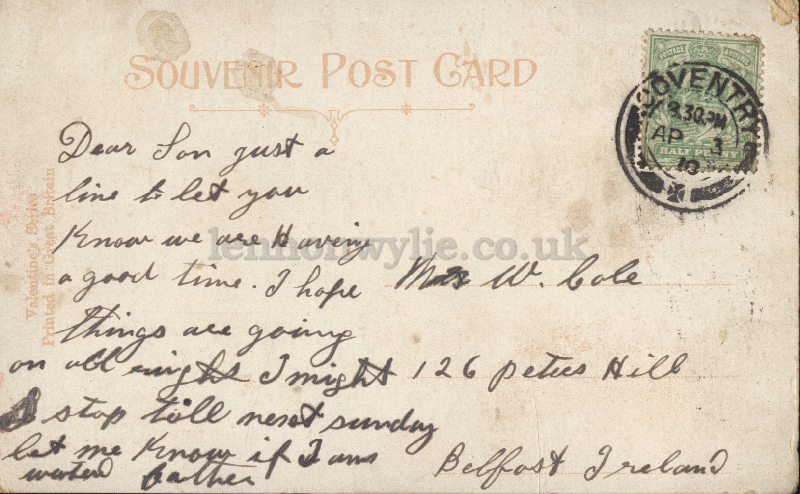 SOUVENIR POST CARD
POSTAGE & REVENUE
HALF PENNY
COVENTRY
8.30PM
AP 3
10
Valentine's Series
Printed in Great Britain
lennonwylie.co.uk
Dear Son just a
line to let you
Know we are Having
a good time. I hope
things are going
on all right I might
stop till next sunday
let me Know if I am
wanted father
W. Cole
126 peters Hill
Belfast Ireland